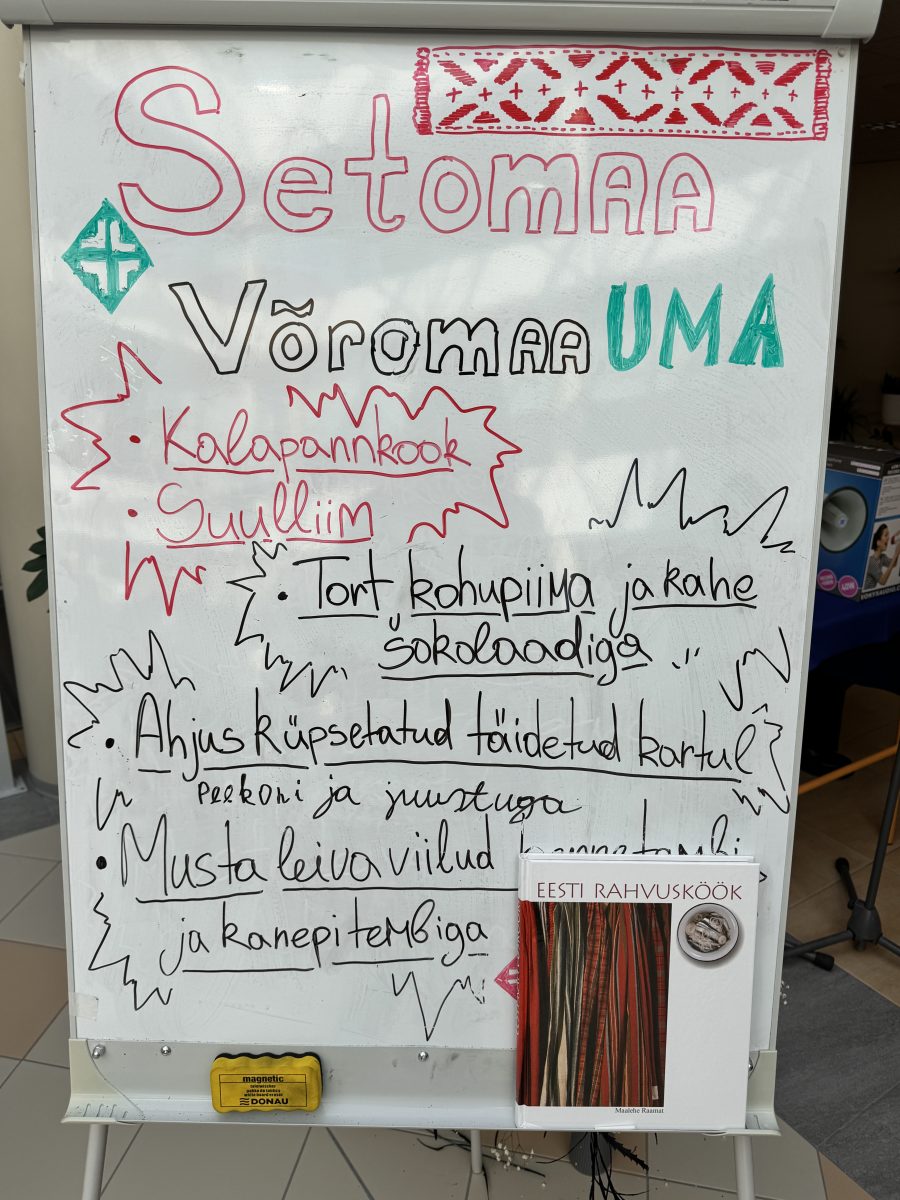 Setomaa
Võromaa UMA
• Kalapannkook
• Suulliim
• Tort kohupiima ja kahe
šokolaadiga
• Ahjus küpsetatud täidetud kartul
peekoni ja juustuga
• Musta leiva viilud
ja kanepitembiga
EESTI RAHVUSKÖÖK
Maalehe Raamat
magnetic
DONAU